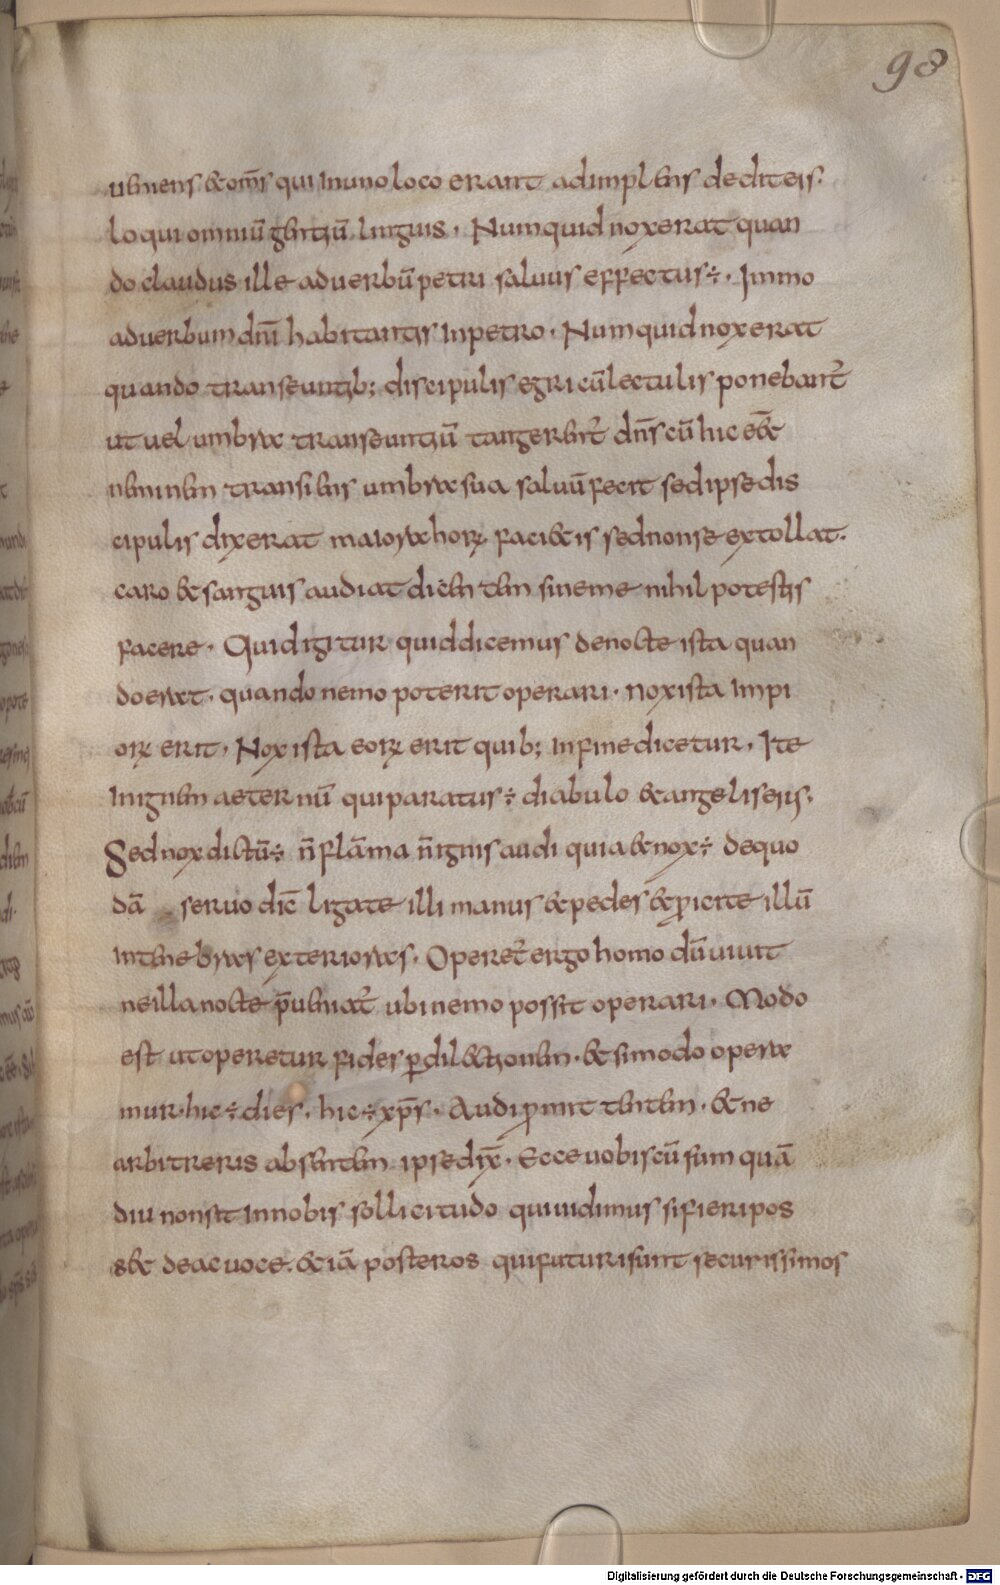 98
ueniens & om̄s qui in uno loco erant adimplens dedit eis.
loqui omniū gentiū linguis. Numquid nox erat quan
do claudus ille ad uerbū petri saluus effectus ÷. Immo
ad uerbum dn̄i habitantis in petro. Numquid nox erat
quando transeuntib; discipulis egri cū lectulis ponebant̄
ut uel umbra transeuntiū tangerent̄ dn̄s cū hic eēt
neminem transiens umbra sua saluū fecit sed ipse dis
cipulis dixerat maiora horꝝ faci&is sed non se extollat.
caro & sanguis audiat dicentem sine me nihil potestis
facere. Quid igitur quid dicemus de nocte ista quan
do erat. quando nemo poterit operari. nox ista impi
orꝝ erit. Nox ista eorꝝ erit quib; in fine dicetur. Ite
in ignem aeternū qui paratus ÷ diabulo & angelis eius.
Sed nox dictū ÷ n̄ flāma n̄ ignis audi quia & nox ÷ de quo
dā seruo dic̄ ligate illi manus & pedes & ꝓicite illū
in tenebras exteriores. Operet̄ ergo homo dū uiuit
ne illa nocte p̄ueniat̄ ubi nemo possit operari. Modo
est ut operetur fides ꝑ dil&tionem. & si modo opera
mur. hic ÷ dies. hic ÷ xp̄s. Audi ꝓmittentem. & ne
arbitreris absentem ipse dix̄. Ecce uobiscū sum quā
diu non sit in nobis sollicitudo qui uidimus si fieri pos
s& de ac uoce. & iā posteros qui futuri sunt securissimos
Digitalisierung gefördert durch die Deutsche Forschungsgemeinschaft - DFG